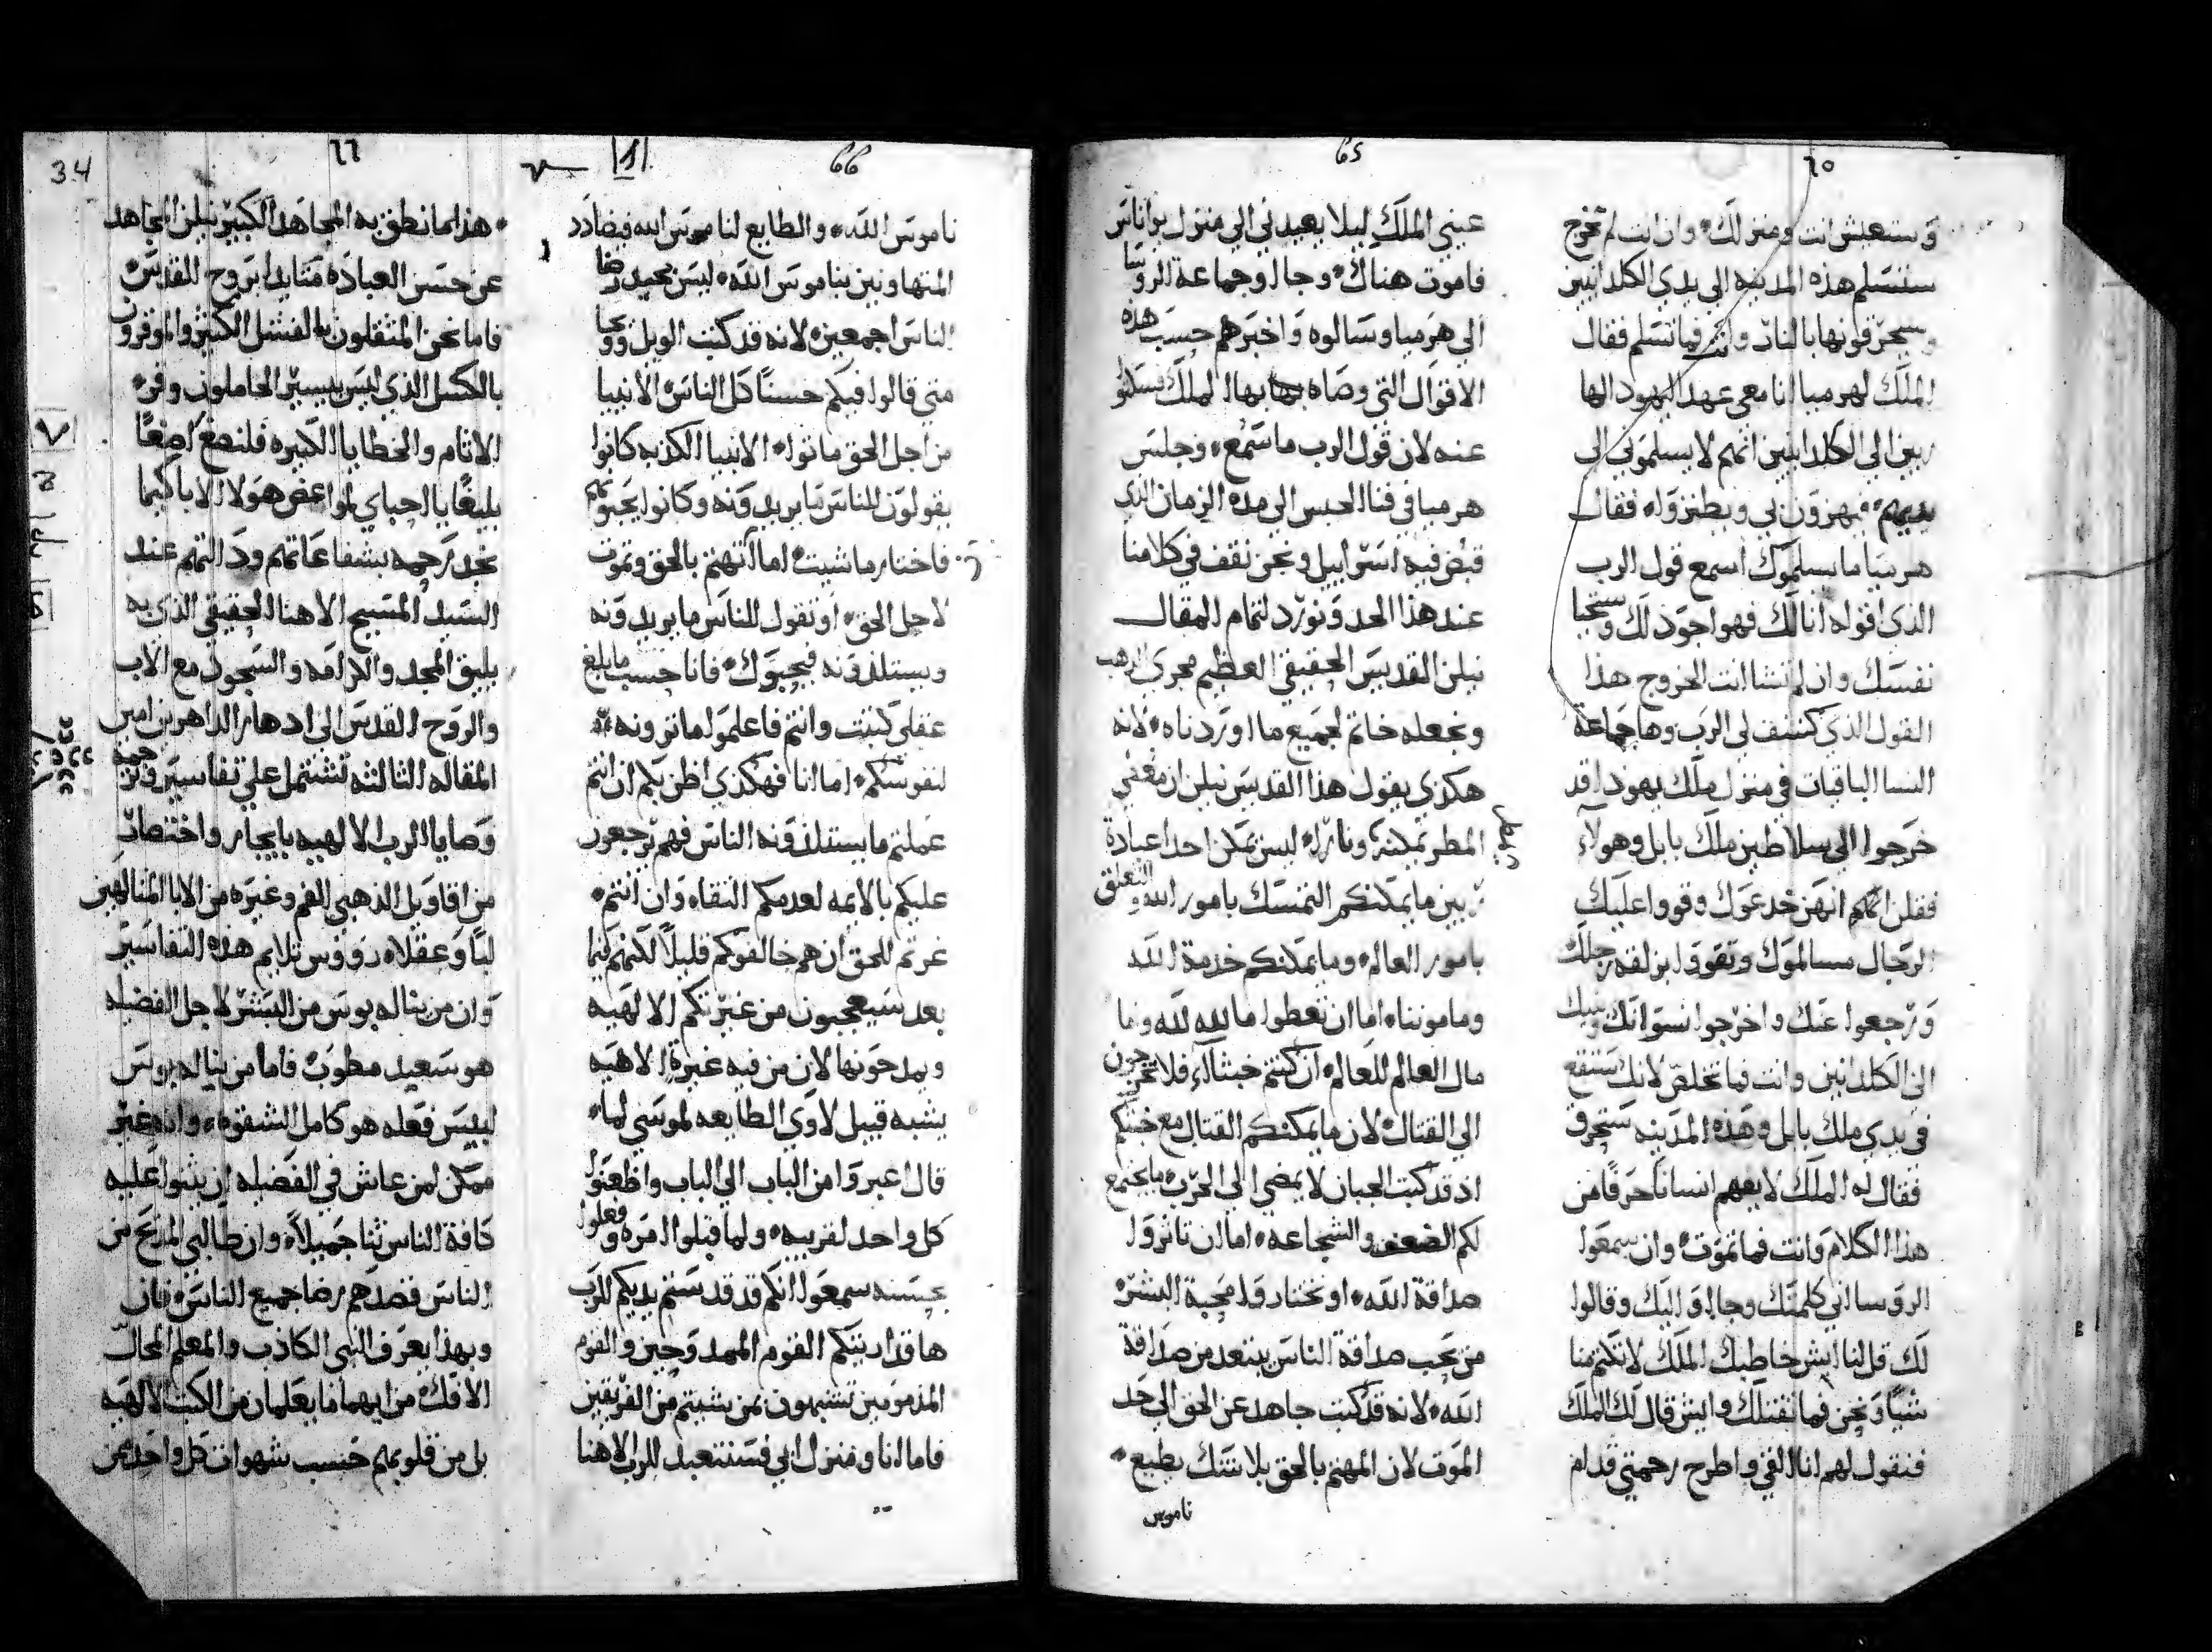 65
٦٥
وستعيش انت ومنزلك وان انت لم تخرج
ستسلم هذه المدينه الي يدي الكلدانيين
وسيحرقونها بالنار وانت فما تسلم فقال
الملك لهرميا انا معي عهد اليهود الها
ربين الي الكلدانيين انهم لا يسلموني الي
يديهم فيهزون بي ويطنزوا فقال
هرميا ما يسلموك اسمع قول الرب
الذي اقوله انا لك فهو اجود لك وستحيا
نفسك وان لم تشا انت الخروج هذا
القول الذي كشف لي الرب وها جماعة
النسا الباقيات في منزل ملك يهودا قد
خرجوا الي سلاطين ملك بابل وهولآء
فقلن انهم انهن خدعوك وقووا عليك
الرجال مسالموك وتقووا بزلقه رجلك
ورجعوا عنك واخرجوا نسوانك وبنيك
الي الكلدانيين وانت فما تخلص لانك ستقع
في يدي ملك بابل وهذه المدينه ستحرق
فقال له الملك لا يفهم انسانا حرفا من
هذا الكلام وانت فما تموت وان سمعوا
الروسا اني كلمتك وجاوا اليك وقالوا
لك قل لنا ايش خاطبك الملك لا تكتم منا
شيا ونحن فما نقتلك وايش قال لك الملك
فتقول لهم انا القي واطرح رحمتي قدام
عيني الملك ليلا يعيدني الي منزل يواناتس
فاموت هناك وجاوا جماعة الروسا
الي هرميا وسالوه واخبرهم حسب هذه
الاقوال التي وصاه بها بها الملك فسكتوا
عنه لان قول الرب ما سمع وجلس
هرميا في فنا الحبس الي مدة الزمان الذي
قبض فيه اسراييل ونحن نقف في كلامنا
عند هذا الحد ونورد لتمام المقال
نيلن القديس الحقيقي العظيم مجري الذهب
ونجعله خاتم لجميع ما اوردناه لانه
هكذي يقول هذا القديس نيلن ان معني
المطر يمكنه ونارا ليس يمكن احدا عبادة
ربين ما يمكنكم التمسك بامور الله والتعلق
بامور العالم وما يمكنكم خدمة الله
ومامونا اما ان تعطوا ما لله لله وما
مال العالم للعالم ان كنتم خبثآء فلا تخرجون
الي القتال لان ما يمكنكم القتال مع خبثكم
اذ قد كتب الجبان لا يمضي الي الحرب ما يجتمع
لكم الضعف والشجاعه اما ان تاثروا
صداقة الله او تختاروا محبة البشر
من يحب صداقة الناس يبتعد من صداقة
الله لانه قد كتب جاهد عن الحق الي حد
الموت لان المهتم بالحق بلا شك يطيع
ناموس
66
٦٦
34
ناموس الله والطايع لناموس الله فيضادد
المتهاونين بناموس الله ليس يجيد رضا
الناس اجمعين لانه قد كتب الويل ووبحا
متي قالوا فيكم حسنا كل الناس الانبيا
من اجل الحق ماتوا الانبيا الكذبه كانوا
يقولون للناس ما يريدونه وكانوا يحبوهم
فاختار ما شيت اما ان تهتم بالحق وتموت
لاجل الحق او تقول للناس ما يريدونه
ويستلذونه فيحبوك فانا حسب ما بلغ
عقلي كتبت وانتم فاعلموا ما ترونه
لنفوسكم اما انا فهكذي اظن بكم ان انتم
عملتم ما يستلذونه الناس فهم يرجعون
عليكم بالايمه لعدمكم النقاه وان انتم
غرتم للحق ان هم خالفوكم قليلا لكنهم فيما
بعد سيعجبون من غيرتكم الالهيه
ويمدحونها لان من فيه غيرة الاهيه
يشبه قبيل لاوي الطايعه لموسي لما
قال اعبروا من الباب الي الباب واطعنوا
كل واحد لقريبه ولما قبلوا امره وفعلوا
بحسنه سمعوا انكم قد قدستم يديكم للرب
ها قد اريتكم القوم الممدوحين والقوم
المذمومين تشبهون بمن شيتم من الفريقين
فاما انا ومنزل ابي فسنتعبد للرب الاهنا
هذا ما نطق به المجاهد الكبير نيلن المجاهد
عن حسن العباده متايدا بروح القدس
فاما نحن المثقلون بالفشل الكثير والموقرون
بالكسل الذي ليس بيسير الحاملون وقر
الاثام والخطايا الكبيره فلنصغ اصغا
بليغا يا احباي لمواعض هولا الابا كيما
نجد رحمه بشفاعاتهم ودالتهم عند
السيد المسيح الاهنا الحقيقي الذي به
يليق المجد والكرامه والسجود مع الاب
والروح القدس الي ادهار الداهرين امين
المقاله الثالثه تشتمل علي تفاسير وترجمة
وصايا الرب الالهيه بايجاز واختصار
من اقاويل الذهبي الفم وغيره من الابا المتالهين
لبا وعقلاه رووس تلايم هذه التفاسير
وان من يناله بوس من البشر لاجل الفضيله
هو سعيد مطوب فاما من يناله بوس
لبيس فعله هو كامل الشقوه وانه غير
ممكن لمن عاش في الفضيله ان يثنوا عليه
كافة الناس ثنا جميلا وان طالبي المديح من
الناس قصدهم رضا جميع الناس فان
وبهذا يعرف النبي الكاذب والمعلم المحال
الافاك من ايهما ما يعلمان من الكتب الالهيه
بل من قلوبهم حسب شهوات كل واحد ممن